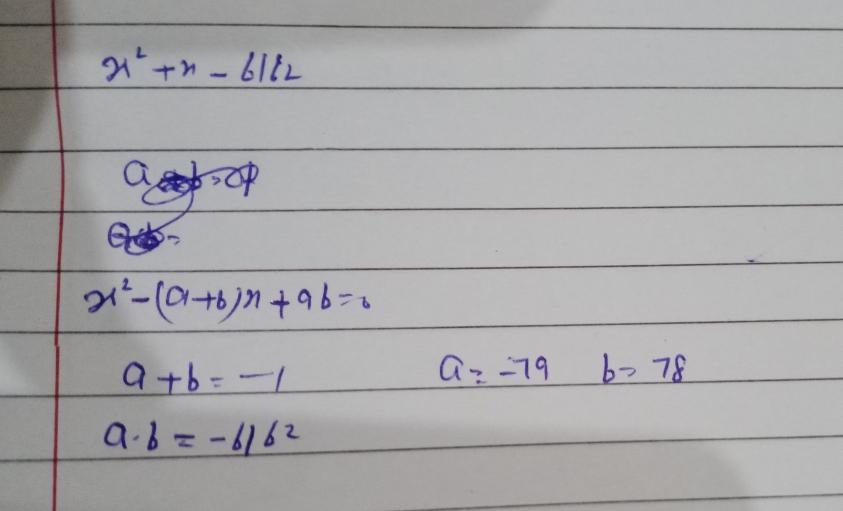 x² + x - 6162
a
x² - (a+b)x + ab = 0
a + b = -1 a = -79 b = 78
a·b = -6162